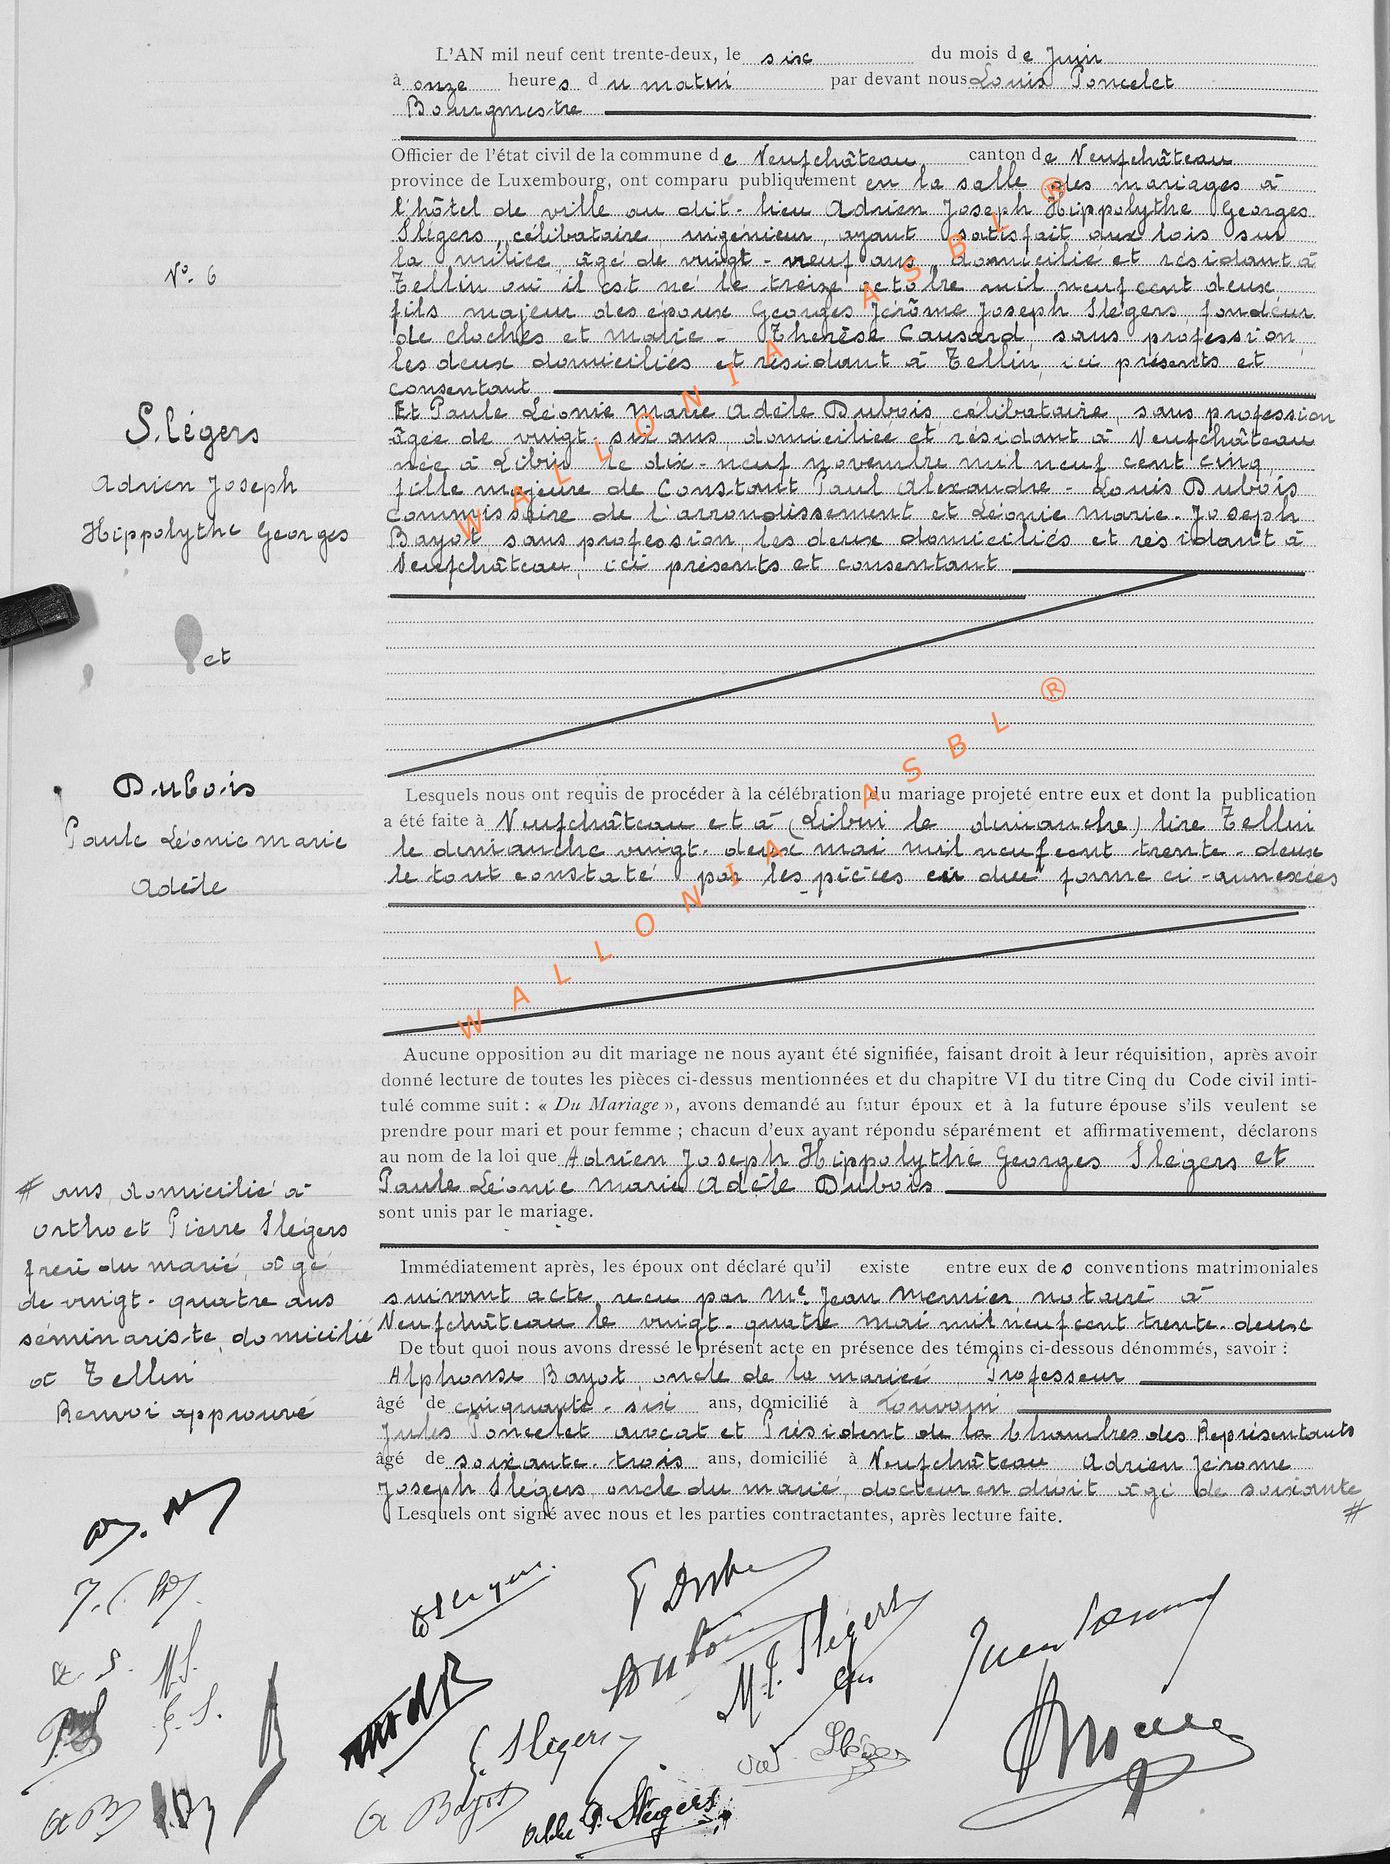 L'AN mil neuf cent trente-deux, le six du mois de Juin
à onze heures du matin par devant nous Louis Poncelet
Bourgmestre
Officier de l'état civil de la commune de Neufchâteau canton de Neufchâteau
province de Luxembourg, ont comparu publiquement en la salle des mariages à
l'hôtel de ville au dit-lieu Adrien Joseph Hippolythe Georges
Slégers, célibataire, ingénieur, ayant satisfait aux lois sur
la milice, âgé de vingt-neuf ans, domicilié et résidant à
Tellin où il est né le treize octobre mil neuf cent deux
fils majeur des époux Georges Jérôme Joseph Slégers, fondeur
de cloches et Marie-Thérèse Causard, sans profession,
les deux domiciliés et résidant à Tellin, ici présents et
consentant
Et Paule Léonie Marie Adèle Dubois, célibataire, sans profession
âgée de vingt-six ans, domiciliée et résidant à Neufchâteau
née à Libin le dix-neuf novembre mil neuf cent cinq,
fille majeure de Constant Paul Alexandre-Louis Dubois
commissaire de l'arrondissement et Léonie Marie-Joseph
Bayot sans profession, les deux domiciliés et résidant à
Neufchâteau, ici présents et consentant
N° 6
Slégers
Adrien Joseph
Hippolythe Georges
et
Dubois
Paule Léonie Marie
Adèle
Lesquels nous ont requis de procéder à la célébration du mariage projeté entre eux et dont la publication
a été faite à Neufchâteau et à (Libin le dimanche) lire Tellin
le dimanche vingt-deux mai mil neuf cent trente-deux
le tout constaté par les pièces en due forme ci-annexées
Aucune opposition au dit mariage ne nous ayant été signifiée, faisant droit à leur réquisition, après avoir
donné lecture de toutes les pièces ci-dessus mentionnées et du chapitre VI du titre Cinq du Code civil inti-
tulé comme suit : « Du Mariage », avons demandé au futur époux et à la future épouse s'ils veulent se
prendre pour mari et pour femme ; chacun d'eux ayant répondu séparément et affirmativement, déclarons
au nom de la loi que Adrien Joseph Hippolythe Georges Slégers et
Paule Léonie Marie Adèle Dubois
sont unis par le mariage.
Immédiatement après, les époux ont déclaré qu'il existe entre eux des conventions matrimoniales
suivant acte reçu par Me Jean Meunier, notaire à
Neufchâteau le vingt-quatre mai mil neuf cent trente-deux
De tout quoi nous avons dressé le présent acte en présence des témoins ci-dessous dénommés, savoir :
Alphonse Bayot, oncle de la mariée Professeur
âgé de cinquante-six ans, domicilié à Louvain
Jules Poncelet avocat et Président de la Chambres des Représentants
âgé de soixante-trois ans, domicilié à Neufchâteau Adrien Jérome
Joseph Slégers, oncle du marié, docteur en droit âgé de soixante #
Lesquels ont signé avec nous et les parties contractantes, après lecture faite.
# ans, domicilié à
Ortho et Pierre Slégers
frère du marié, âgé
de vingt-quatre ans
séminariste, domicilié
à Tellin
Renvoi approuvé
Dubois
M. J. Slégers
G. Slégers
A Bayot
abbé P. Slégers
M.S.
G.S.
AB
WALLONIA ASBL ®
WALLONIA ASBL ®